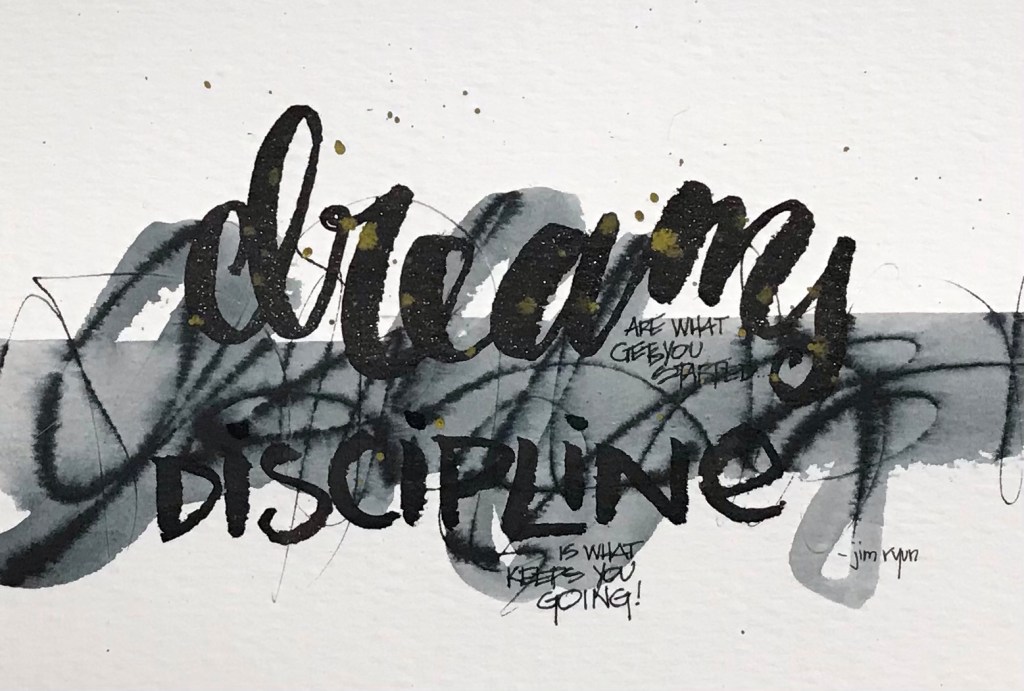 dreams
ARE WHAT
GET YOU
STARTED...
DISCIPLINE
IS WHAT
KEEPS YOU
GOING!
-jim ryun